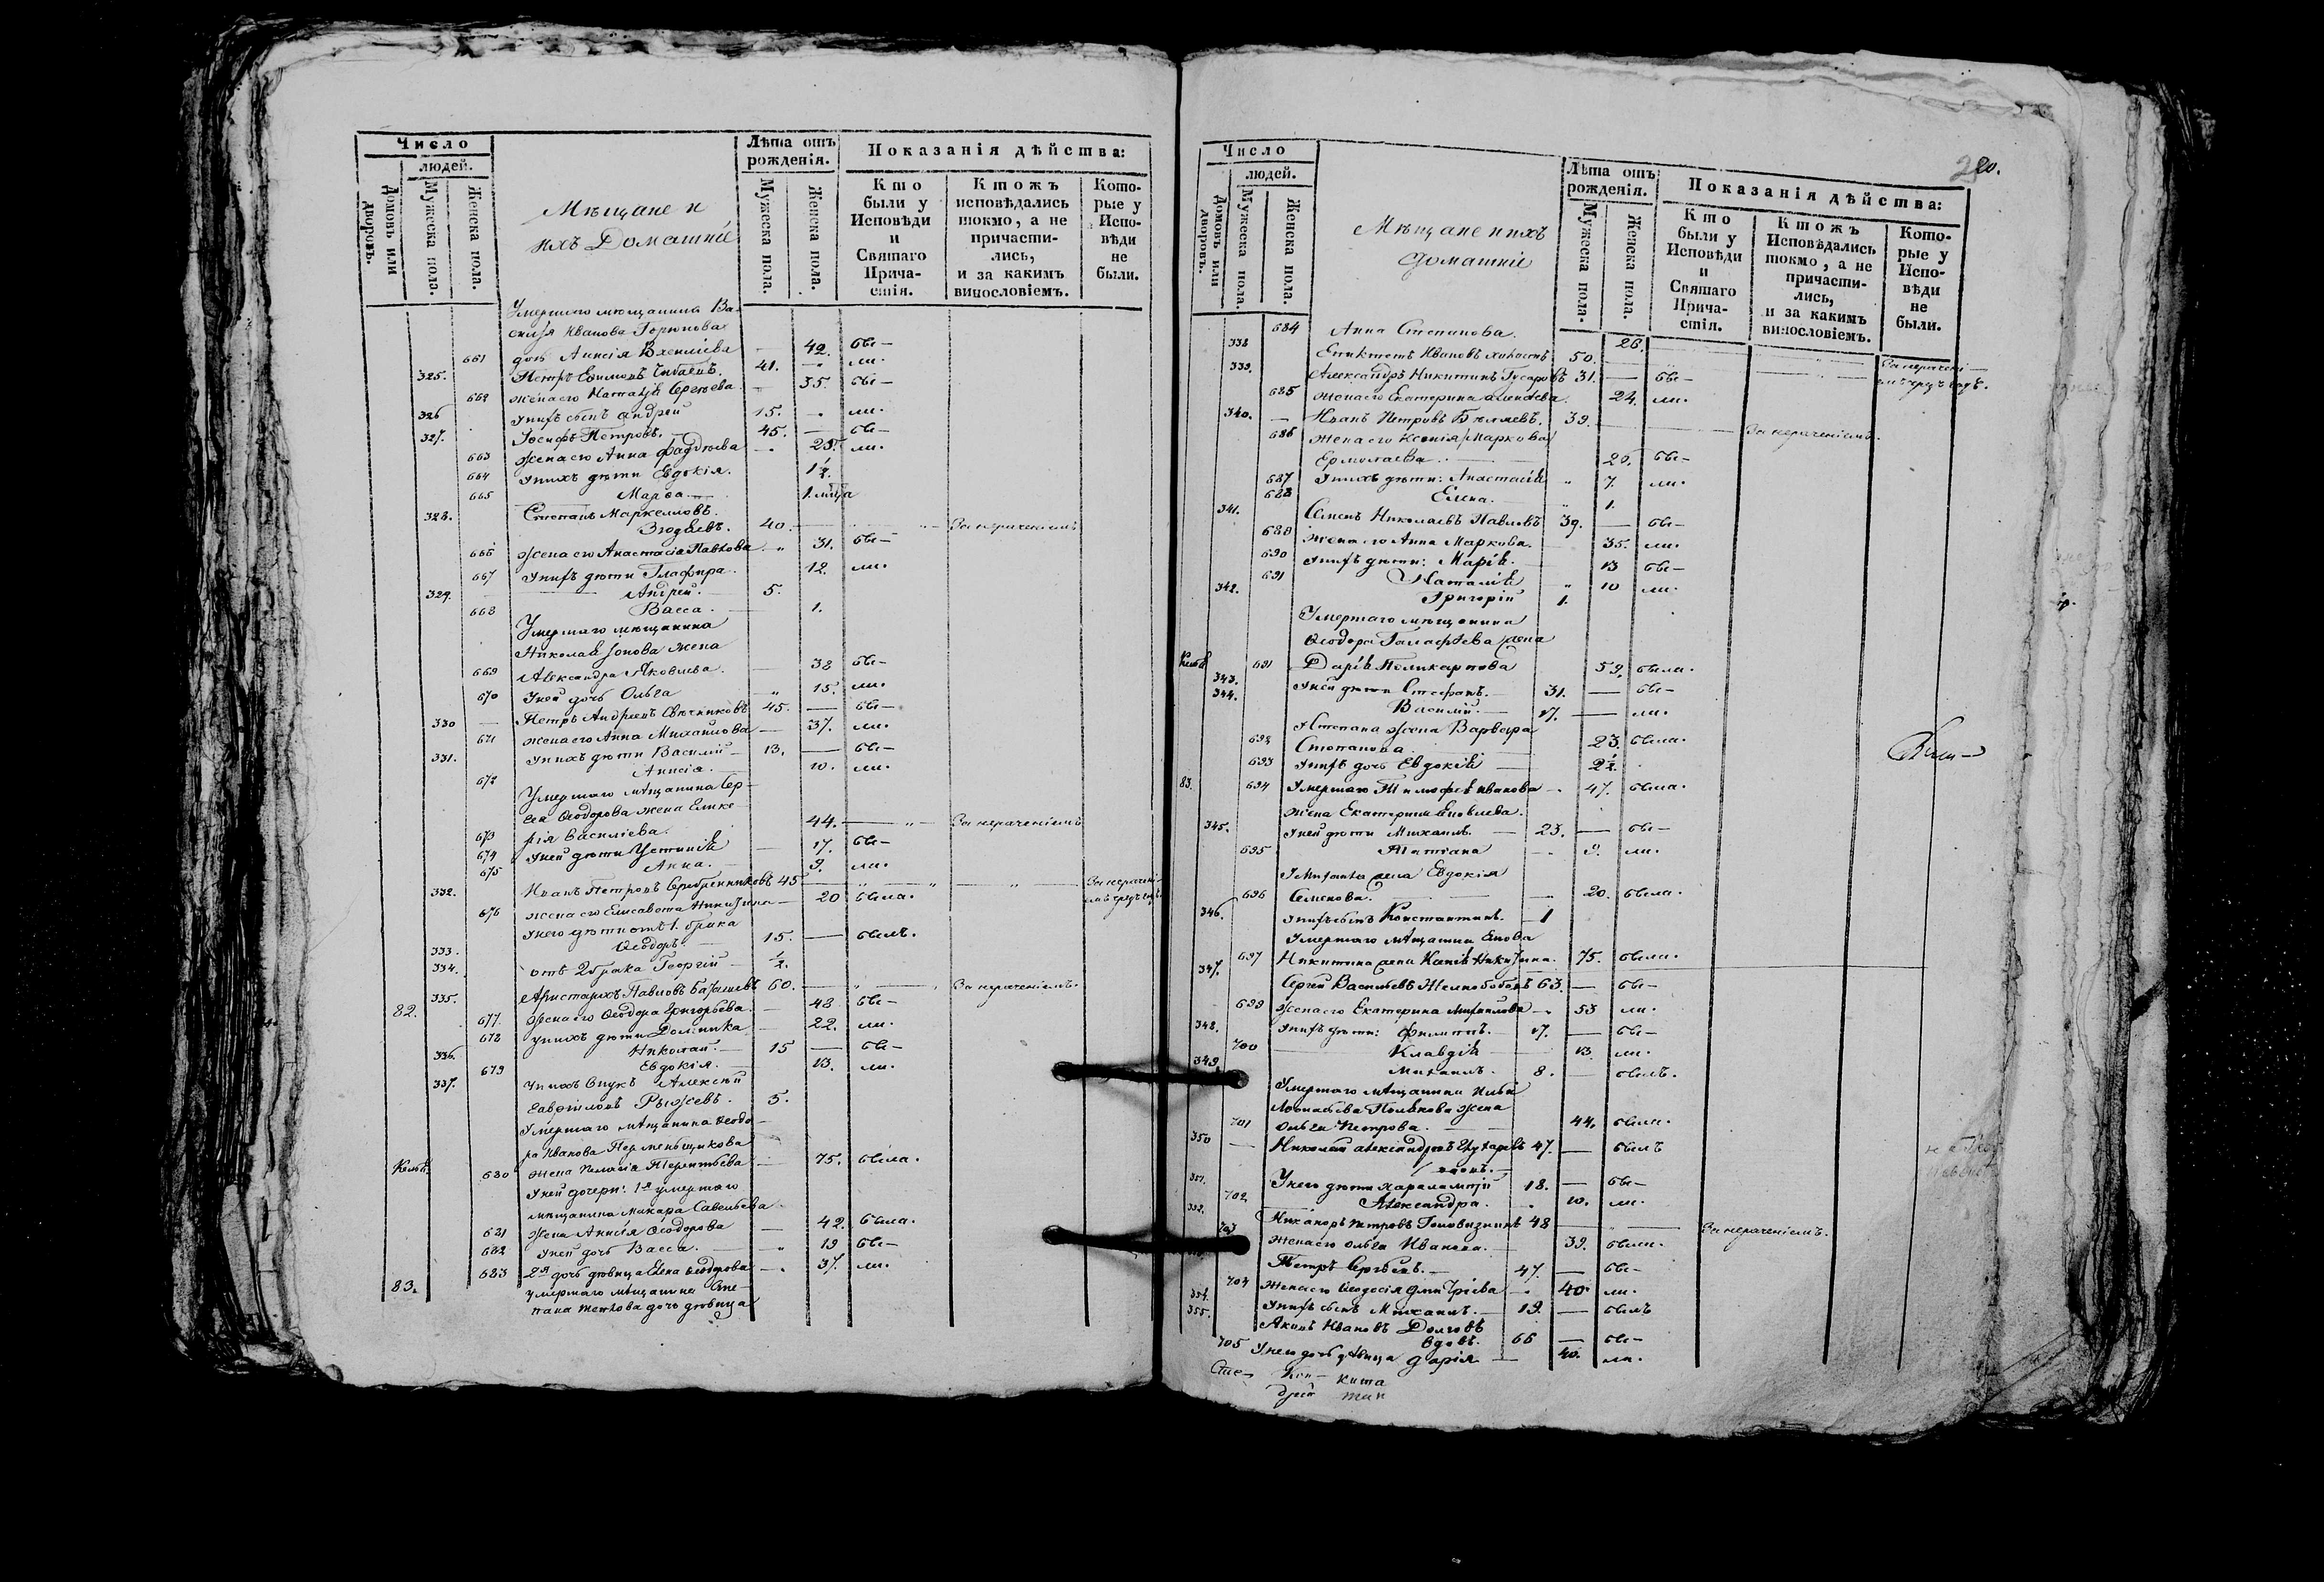 Число
людей.
Домовъ или дворовъ.
Мужеска пола.
Женска пола.
Мѣщане и
ихъ Домашніе
Лѣта отъ
рожденія.
Мужеска пола.
Женска пола.
Показанія дѣйства:
Кто
были у
Исповѣди
и
Святаго
Прича-
стія.
Ктожъ
исповѣдались
токмо, а не
причасти-
лись,
и за какимъ
винословіемъ.
Кото-
рые у
Испо-
вѣди
не
были.
Умершаго мѣщанина Ва-
силья Иванова Горюнова
661 дочь Анисія Васильева — 42. бы—
325. Петръ Ефимовъ 41. — ли.
662 жена его Наталья Сергѣева — 35. бы—
326 у нихъ сынъ Андрей 15. — ли.
327. Іосифъ Петровъ. 45. — бы—
663 жена его Анна Фаддѣева — 25. ли.
664 у нихъ дѣти Евдокія. 1/2.
665 Марѳа
328. Степанъ Маркелловъ.
40. — За нераченіемъ
666 жена его Анастасіа Павлова — 31. бы—
667 у нихъ дѣти Глафира. 12. ли.
329. Андрей. 5.
668 Васса. 1.
Умершаго мѣщанина
Николая Іонова жена
669 Александра Яковлева. — 38 бы—
670 У ней дочь Ольга 15. ли.
330 — Петръ Андреевъ Свѣчниковъ 45. — бы—
671 жена его Анна Михайлова — 37. ли.
331. у нихъ дѣти Василій — 13. — бы—
672 Анисіа. 10. ли.
Умершаго мѣщанина Сер-
гея Ѳеодорова жена Глике-
673 рія Василіева. 44. — За нераченіемъ
674 У ней дѣти Устинія — 17. бы—
675 Анна. — 9. ли.
332. Иванъ Петровъ Серебренниковъ 45 —
676 жена его Елисавета Никитина — 20 была.
У него дѣти отъ 1. брака
333. Ѳеодоръ. — 15. — былъ.
334. отъ 2 брака Георгій — 1/2.
82. 335. Аристархъ Павловъ 60. — За нераченіемъ.
677 жена его Ѳеодора Григорьева. — 48. бы—
678 у нихъ дѣти Домника — 22. ли.
336. Николай. — 15 — бы—
679 Евдокія. — 13. ли.
337. У нихъ внукъ Алексѣй
Гавріиловъ Рыжевъ. 5.
Умершаго мѣщанина Ѳеодо-
ра Иванова Перменьщикова
680 жена Пелагіа Терентьева — 75. была.
У ней дочери: 1я умершаго
мѣщанина Макара Савельева
681 жена Анисія Ѳеодорова — 42. была.
682 у ней дочь Васса. 19 бы—
683 2я дочь дѣвица Елена Ѳеодорова — 37. ли.
83. умершаго мѣщанина Сте-
пана дочь дѣвица
280.
Число
людей.
Домовъ или дворовъ.
Мужеска пола.
Женска пола.
Мѣщане и ихъ
домашніе
Лѣта отъ
рожденія.
Мужеска пола.
Женска пола.
Показанія дѣйства:
Кто
были у
Исповѣди
и
Святаго
Прича-
стія.
Ктожъ
Исповѣдались
токмо, а не
причасти-
лись,
и за какимъ
винословіемъ.
Кото-
рые у
Испо-
вѣди
не
были.
684 Анна Степанова. 26.
338 Епиктетъ Ивановъ холостъ 50. —
339. Александръ Никитинъ Гусаровъ 31. — бы—
685 жена его Екатерина Алексѣева. 24. ли.
340. — Иванъ Петровъ Бѣляевъ. 39. — За нераченіемъ.
686 жена его Ксенія Маркова
Ермолаева. 20. бы—
687 У нихъ дѣти: Анастасія 7. ли.
688 Елена. 1.
341. Семенъ Николаевъ Павловъ 39. — бы—
689 жена его Анна Маркова. 35. ли.
690 у нихъ дѣти: Марія. 13 бы—
691 Наталія 10 ли.
342. Григорій 1.
Умершаго мѣщанина
Ѳеодора жена
691 Дарія Поликарпова 59. была.
343. У ней дѣти Стефанъ. — 31. — бы—
344. Василій. — 17. — ли.
У Степана жена Варвара
692 Степанова. 23. была.
693 У нихъ дочь Евдокія — 2 1/2.
83. 694 Умершаго Тимофея Иванова — 47. была.
жена Екатерина Яковлева.
345. У ней дѣти Михаилъ. — 23. — бы—
695 Татіана — 9. ли.
У Михаила жена Евдокія
696 Семенова. — 20. была.
346. у нихъ сынъ Константинъ. — 1
Умершаго мѣщанина Якова
697 Никитина жена Ксенія Никитина. 75. была.
347. Сергей Васильевъ Желнободовъ 63. — бы—
699 жена его Екатерина Михайлова — 53 ли.
348. у нихъ дѣти: Филиппъ. — 17. — бы—
700 Клавдія 13. ли.
349 Михаилъ. 8. — былъ.
Умершаго мѣщанина Ильи
Леонтьева Полякова жена
701 Ольга Петрова. 44. была.
350 — Николай Александровъ 47. — былъ
вдовъ.
351. У него дѣти Харалампій 18. — бы—
702 Александра. 10. ли.
352. Никаноръ Петровъ Головизнинъ 48 — За нераченіемъ.
703 жена его Ольга Иванова. — 39. была.
Петръ Сергѣевъ. — 47. — бы—
704 жена его Ѳеодосія Дмитріева — 40. ли.
354. У нихъ сынъ Михаилъ. — 19. — былъ
355. Акимъ Ивановъ Долговъ
вдовъ. 66 — бы—
705 У него дочь дѣвица Дарія — 40. ли.